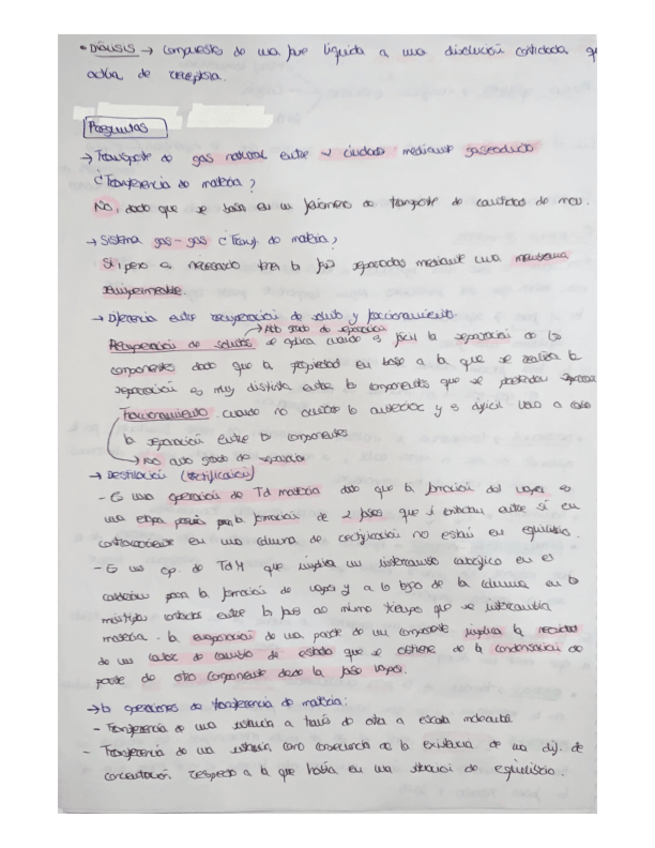 • DIÁLISIS → Compuestos de una fase líquida a una disolución controlada, q
actúa de receptora.
Preguntas
→ Transporte de gas natural entre 2 ciudades mediante gaseoducto
¿Transferencia de materia?
No, dado que se basa en un fenómeno de transporte de cantidad de mov.
→ Sistema gas-gas ¿Transf. de materia?
Sí, pero es necesario tener las fases separadas mediante una membrana
semipermeable.
→ Diferencia entre recuperación de soluto y fraccionamiento.
→ Alto grado de separación
Recuperación de solutos se aplica cuando es fácil la separación de los
componentes dado que la propiedad en base a la que se realiza la
separación es muy distinta entre los componentes que se pretenden separar
Fraccionamiento cuando no ocurre lo anterior y es difícil llevar a cabo
la separación entre los componentes
→ No alto grado de separación
→ Destilación (rectificación)
- Es una operación de Td materia dado que la formación del vapor es
una etapa previa para la formación de 2 fases que si entran entre sí en
contracorriente en una columna de rectificación no están en equilibrio.
- Es una op. de TdM que implica un intercambio calorífico en el
calderín para la formación de vapor y a lo largo de la columna en los
múltiples contactos entre las fases al mismo tiempo que se intercambia
materia. La evaporación de una parte de un componente implica la necesidad
de un calor de cambio de estado que se obtiene de la condensación de
parte de otro componente desde la fase vapor.
→ Las operaciones de transferencia de materia:
- Transferencia de una sustancia a través de otra a escala molecular.
- Transferencia de una sustancia como consecuencia de la existencia de una dif. de
concentración respecto a la que habría en una situación de equilibrio.